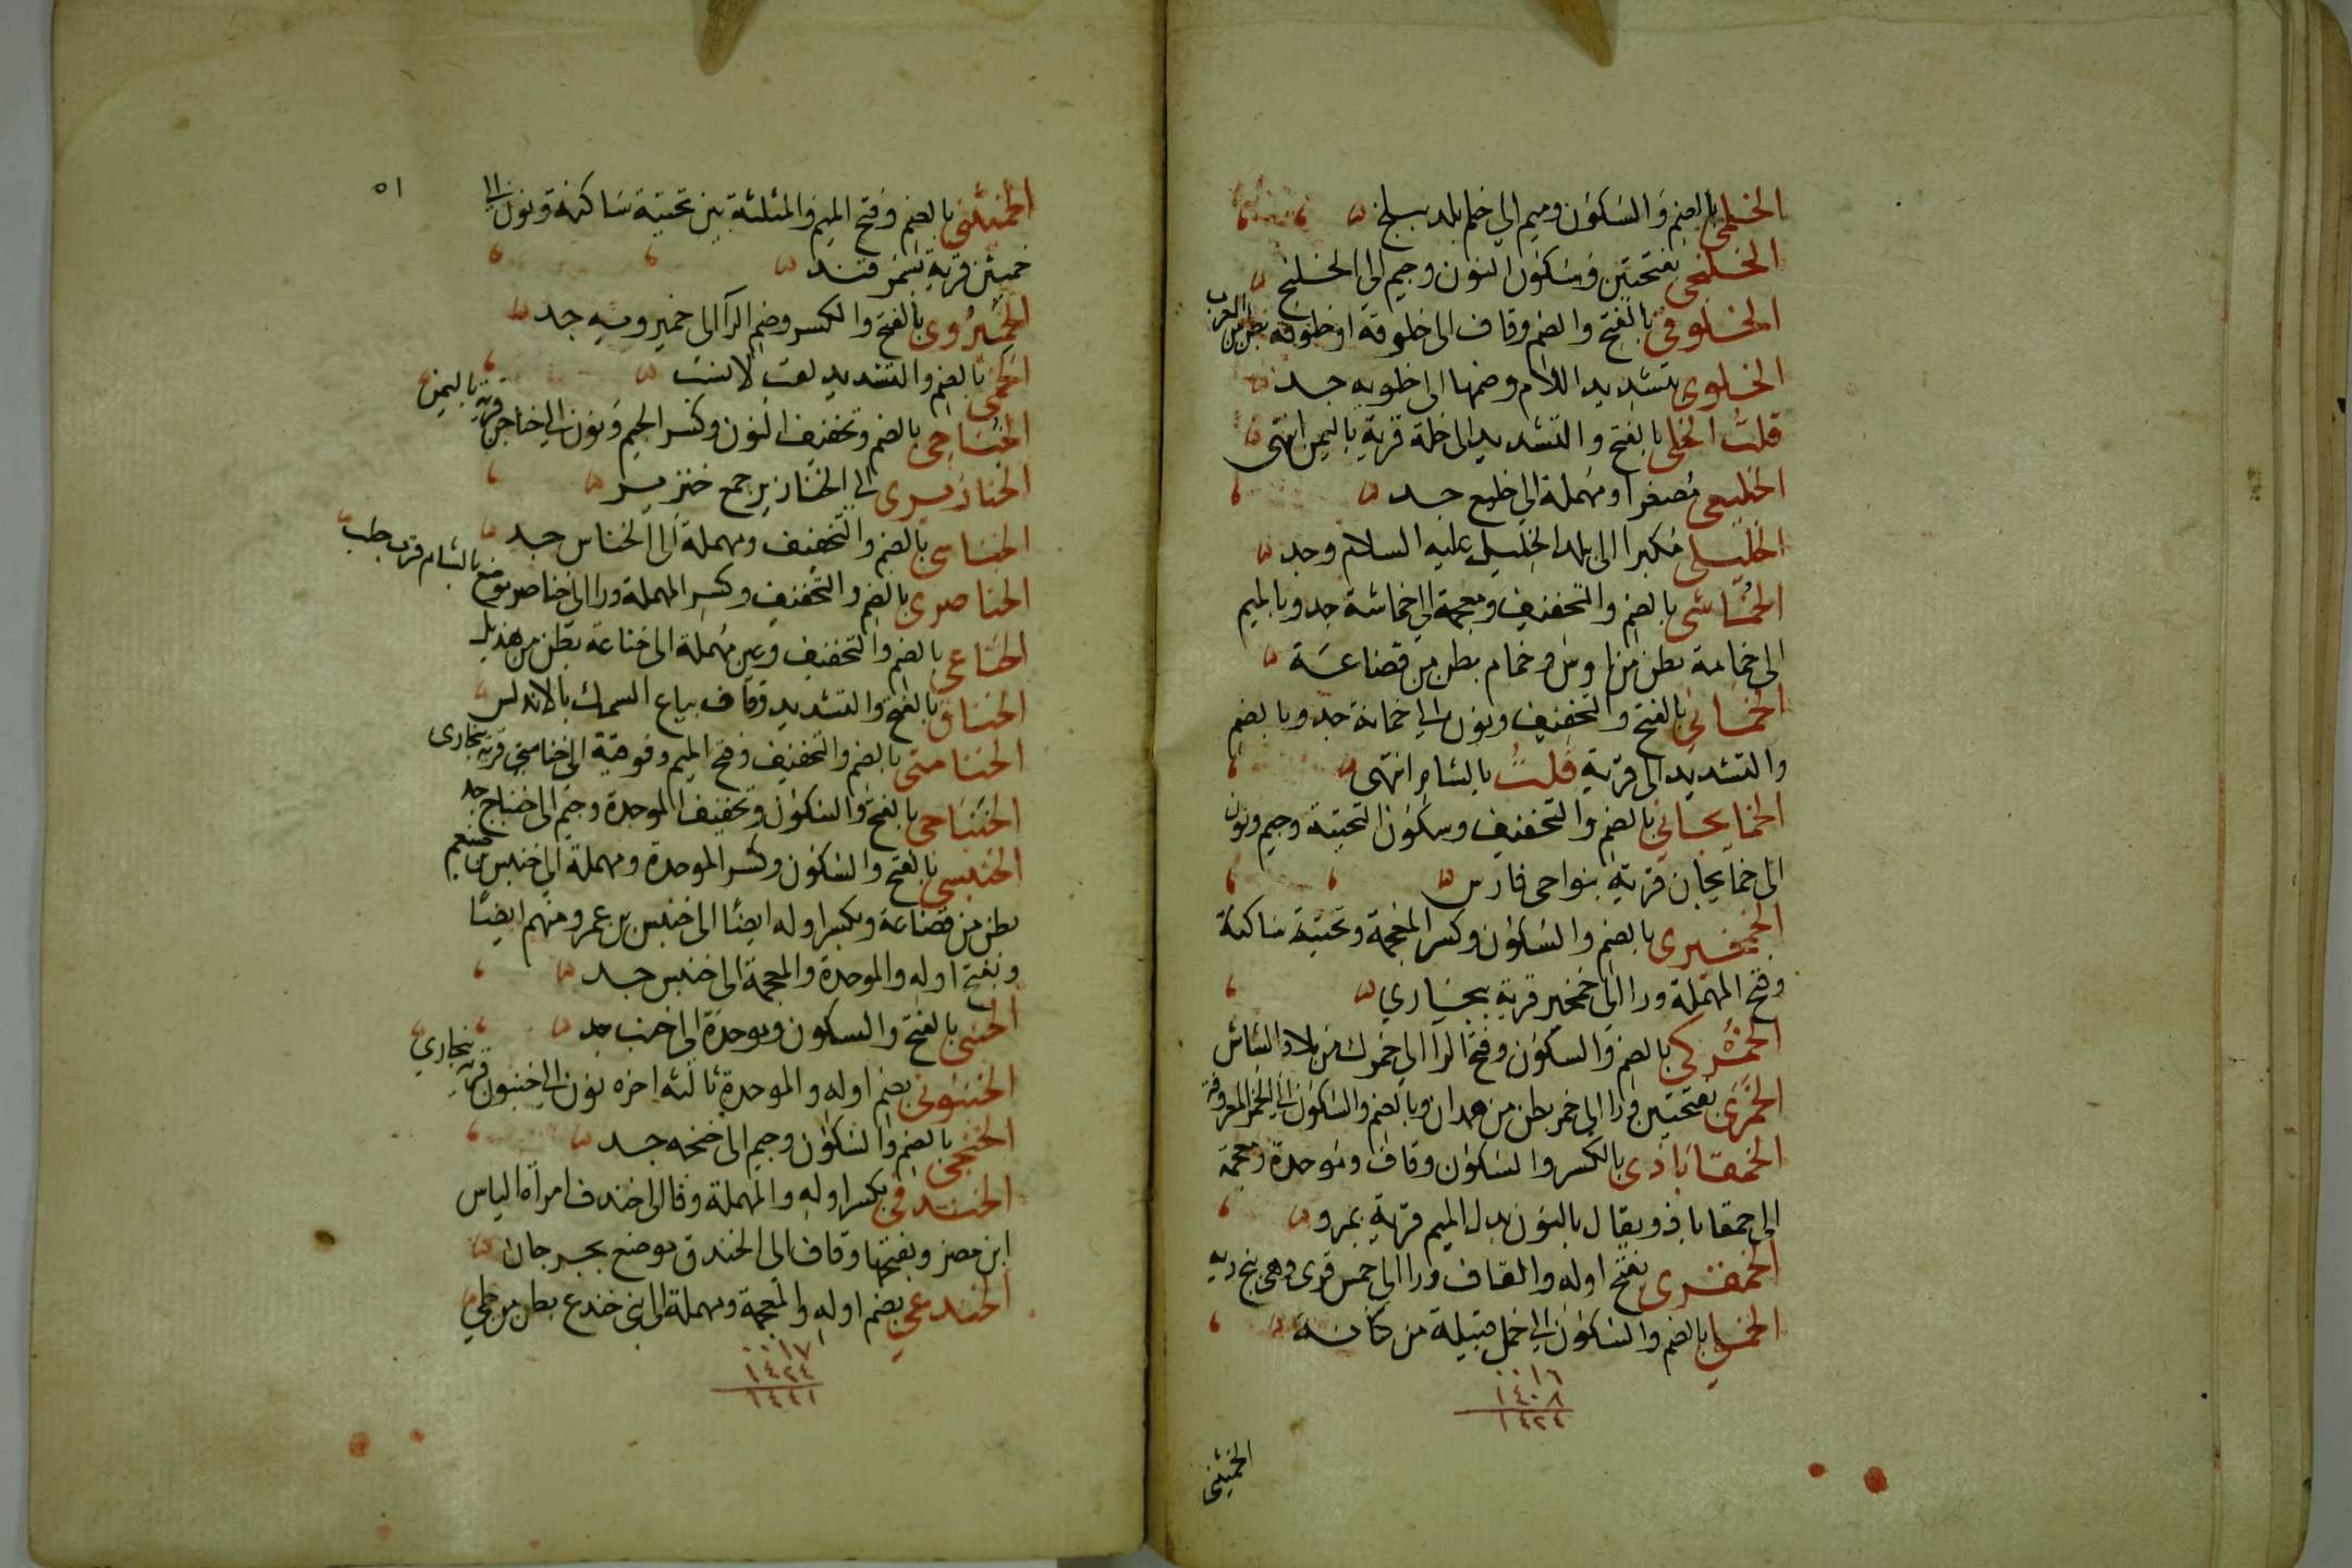 الخلمى بالضم والسكون وميم الى خلم بلد ببلخ
الخلنجى بفتحتين وسكون النون وجيم الى الخلنج
الخلوقى بالفتح والضم وقاف الى خلوقة او خلوقه بطن من العرب
الخلوى بتشديد اللام وضمها الى خلويه جد
قلت الخلى بالفتح والتشديد الى خلة قرية باليمن انتهى
الخليعى مصغرا ومهملة الى خليع جد
الخليلى مكبرا الى بلد الخليل عليه السلام وجد
الخماشى بالضم والتخفيف ومعجمة الى خماشة جد وبالميم
الى خمامة بطن من اوس وخمام بطن من قضاعة
الخمانى بالفتح والتخفيف ونون الى خمانة جد وبالضم
والتشديد الى قرية قلت بالشام انتهى
الخمايجانى بالضم والتخفيف وسكون التحتية وجيم ونون
الى خمايجان قرية بنواحى فارس
الخمخيسرى بالضم والسكون وكسر المعجمة وتحتية ساكنة
وفتح المهملة ورا الى قرية ببخارى
الخمركى بالضم والسكون وفتح الرا الى خمرك من بلاد الشاش
الخمرى بفتحتين ورا الى خمر بطن من همدان وبالضم والسكون الى الخمر المعروفة
الخمقاباذى بالكسر والسكون وقاف وموحدة ومعجمة
الى خمقاباذ ويقال بالنون بدل الميم قرية بمرو
الخمقرى بفتح اوله والقاف ورا الى خمس قرى وهى بنج ديه
الخملى بالضم والسكون الى خمل قبيلة من كنانة
١٦
١٤٠٨
١٤٢٤
الخميثنى
٥١
الخميثنى بالضم وفتح الميم والمثلثة بين تحتية ساكنة ونون الى
خميثن قرية بسمرقند
الخميروى بالفتح والكسر وضم الرا الى خميرويه جد
الخمى بالضم والتشديد
الخناجى بالضم وتخفيف النون وكسر الجيم ونون الى خناجن قرية باليمن
الخنازيرى الى الخنازير جمع خنزير
الخناسى بالضم والتخفيف ومهملة الى الخناس جد
الخناصرى بالضم والتخفيف وكسر المهملة ورا الى خناصر موضع بالشام قرب حلب
الخناعى بالضم والتخفيف وعين مهملة الى خناعة بطن من هذيل
الخناق بالفتح والتشديد وقاف بياع السمك بالاندلس
الخنامتى بالضم والتخفيف وفتح الميم وفوقية الى قرية ببخارى
الخنباجى بالفتح والسكون وتخفيف الموحدة وجيم الى خنباج جد
الخنبسى بالفتح والسكون وكسر الموحدة ومهملة الى خنبس
بطن من قضاعة وبكسر اوله ايضا الى خنبس بن عمرو منهم ايضا
وبفتح اوله والموحدة والمعجمة الى خنبس جد
الخنبى بالفتح والسكون وموحدة الى خنب جد
الخنبونى بضم اوله والموحدة ثالثه اخره نون الى خنبون قرية ببخارى
الخنجى بالضم والسكون وجيم الى جد
الخندفى بكسر اوله والمهملة وفا الى خندف امراة الياس
ابن مضر وبفتحها وقاف الى الخندق موضع بجرجان
الخندعى بضم اوله والمعجمة ومهملة الى بنى خندع بطن من طى
١٧
١٤٢٤
١٤٤١